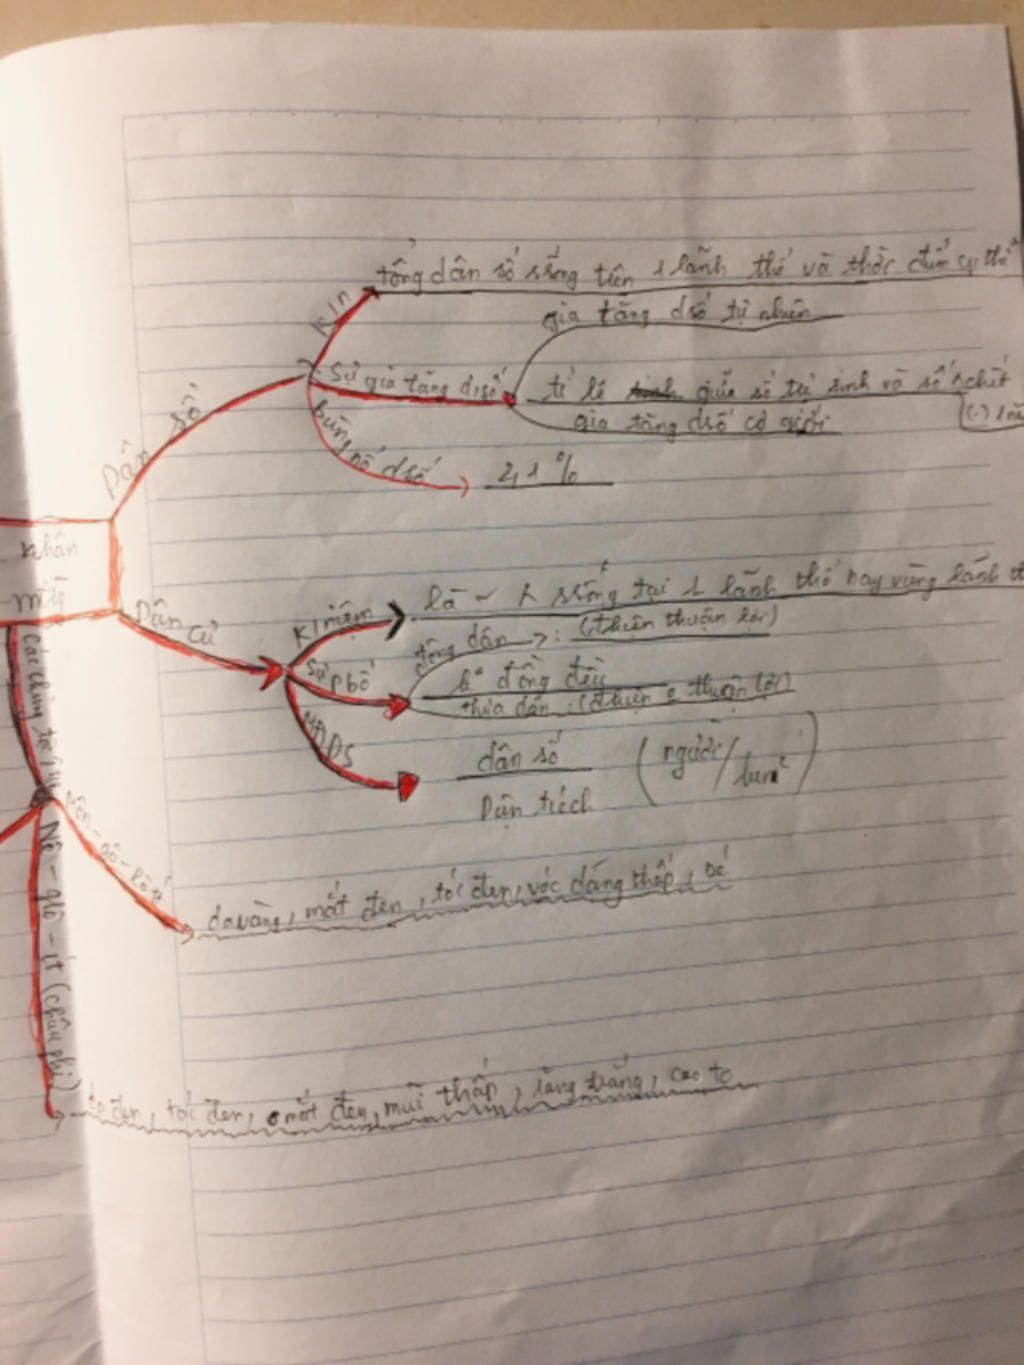 tổng dân số sống trên 1 lãnh thổ và thời điểm cụ thể
KIN
gia tăng dsố tự nhiên
Sự gia tăng dsố
tỉ lệ giữa số trẻ sinh và số chết
(.) 1 nă
gia tăng dsố cơ giới
Dân số
bùng nổ dsố
2,1%
nhân
là ~ sống tại 1 lãnh thổ hay vùng lãnh
KI niệm
Dân cư
đông dân : (đ kiện thuận lợi)
Sự pbố
đồng đều
thưa dân : (đ kiện thuận lợi)
MĐDS
dân số
Diện tích
(người/km²)
Các chủng tộc
Môn-gô-lô-ít
da vàng, mắt đen, tóc đen, vóc dáng thấp, bé
Nê-grô-ít (châu phi)
da đen, tóc đen, mắt đen, mũi thấp, răng trắng, cao to